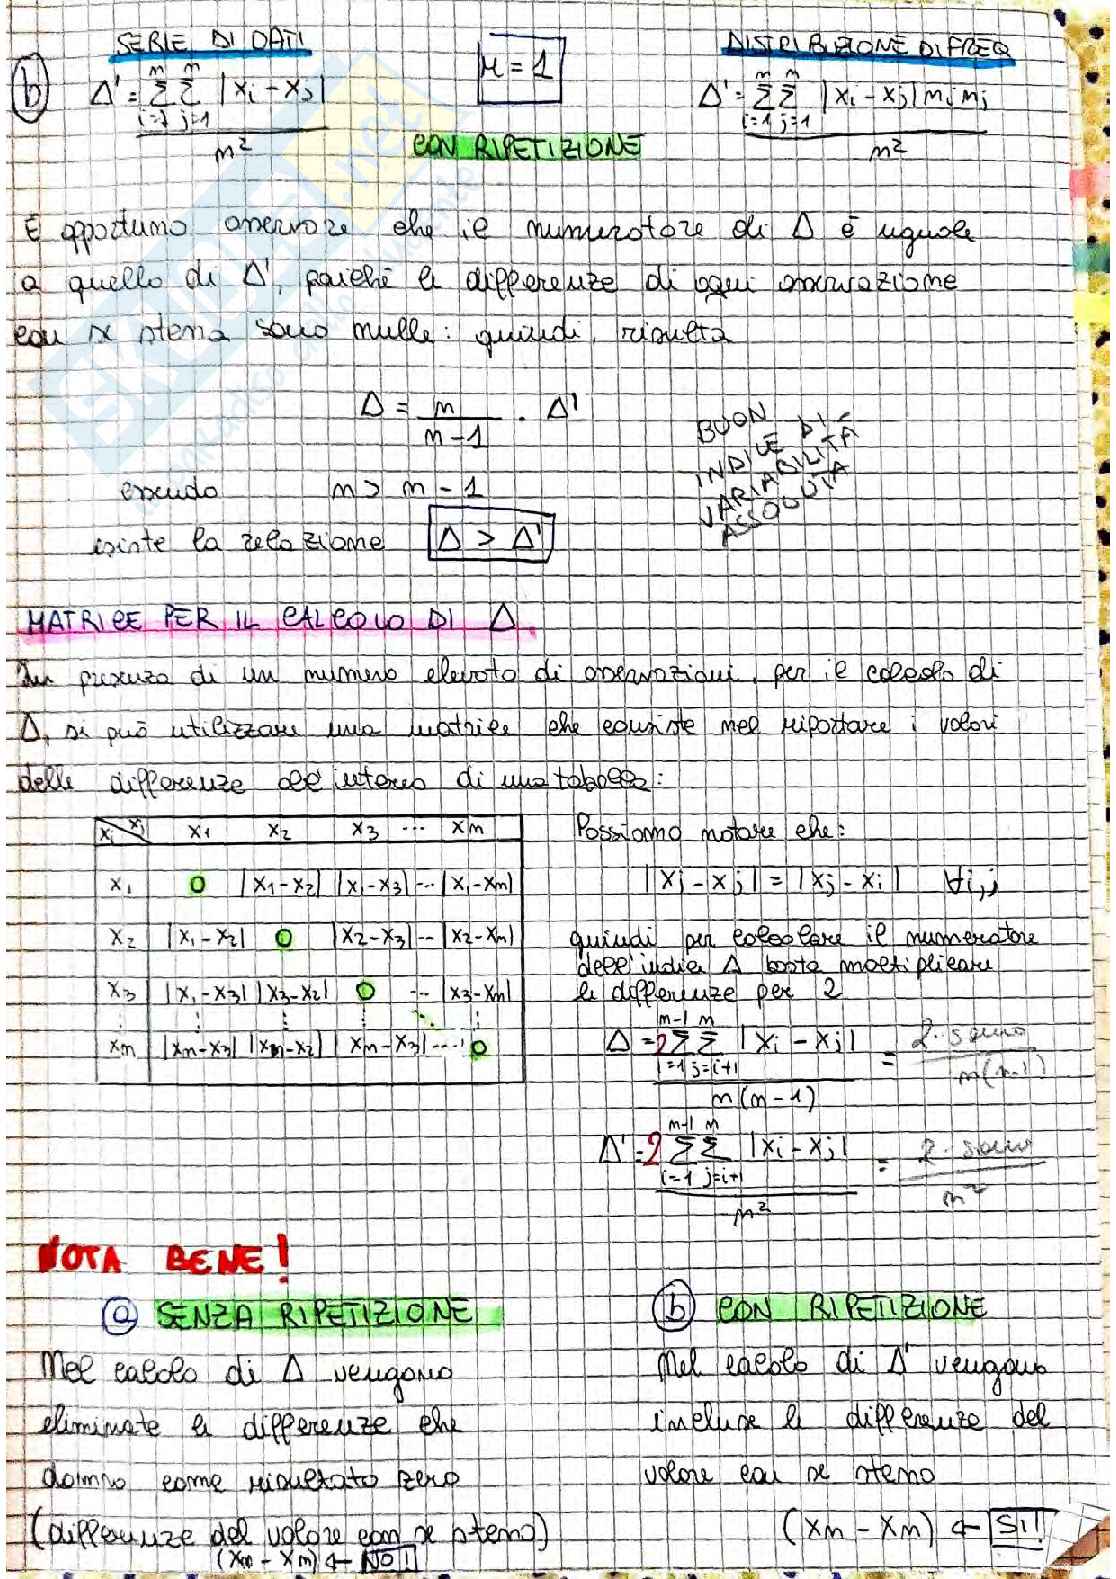 SERIE DI DATI
r = 1
DISTRIBUZIONE DI FREQ
b
Δ' = Σ Σ |xi - xj|
n n
i=1 j=1
n²
Δ' = Σ Σ |xi - xj| ni nj
n n
i=1 j=1
n²
CON RIPETIZIONE
È opportuno osservare che il numeratore di Δ è uguale
a quello di Δ', poiché le differenze di ogni osservazione
con se stessa sono nulle: quindi, risulta
Δ = n / n-1 · Δ'
BUON
INDICE DI
VARIABILITÀ
ASSOLUTA
essendo n > n - 1
esiste la relazione Δ > Δ'
MATRICE PER IL CALCOLO DI Δ.
In presenza di un numero elevato di osservazioni, per il calcolo di
Δ, si può utilizzare una matrice che consiste nel riportare i valori
delle differenze all'interno di una tabella:
xi xj x1 x2 x3 ... xn
x1 0 |x1-x2| |x1-x3| ... |x1-xn|
x2 |x1-x2| 0 |x2-x3| -- |x2-xn|
x3 |x1-x3| |x3-x2| 0 -- |x3-xn|
xn |xn-x3| |xn-x2| |xn-x3| .... 0
Possiamo notare che:
|xi - xj| = |xj - xi| ∀i,j
quindi per calcolare il numeratore
dell'indice Δ basta moltiplicare
le differenze per 2
Δ = 2 Σ Σ |xi - xj| = 2·somma
n-1 n
i=1 j=i+1
n(n-1) n(n-1)
Δ' = 2 Σ Σ |xi - xj| = 2·somma
n-1 n
i=1 j=i+1
n² n²
NOTA BENE!
a SENZA RIPETIZIONE
Nel calcolo di Δ vengono
eliminate le differenze che
danno come risultato zero
(differenze del valore con se stesso)
(xn - xn) ← NO!
b CON RIPETIZIONE
Nel calcolo di Δ' vengono
incluse le differenze del
valore con se stesso
(xn - xn) ← SI!
SKUOLA.net